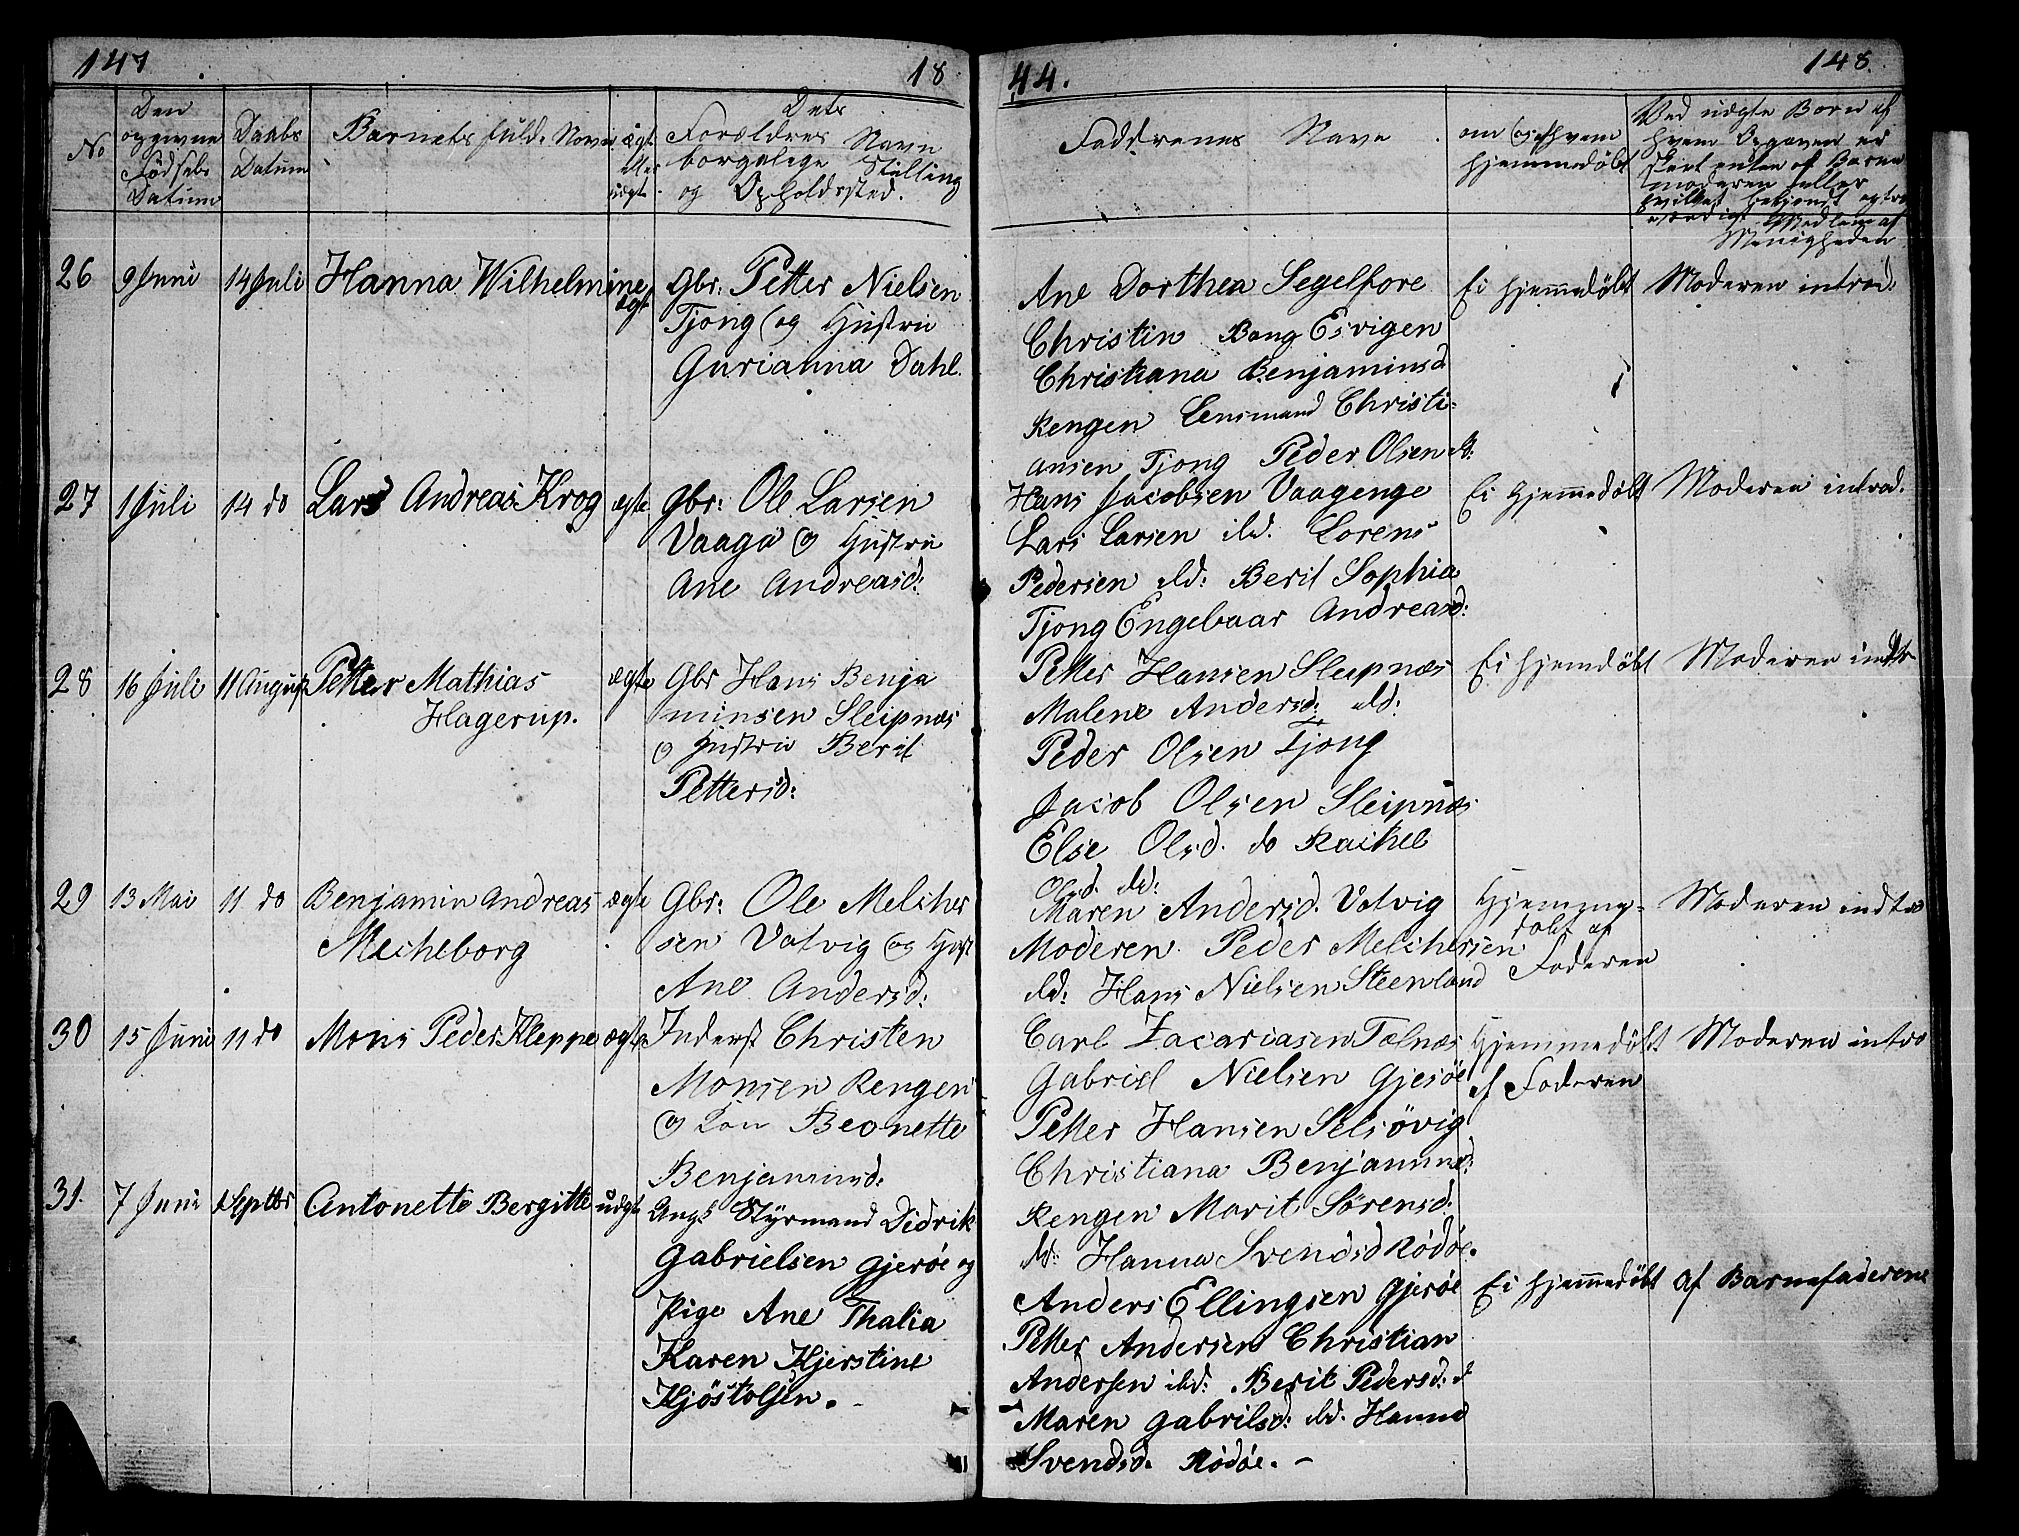 147
18
44.
148.
No
Den
opgivne
Fødsels
Datum
Daabs
Datum
Barnets fulde Navn
ægt
eller
uægt
Dets
Forældres Navn
borgelige Stilling
og Opholdssted.
Faddrenes Navn
om og af hvem
hjemmedøbt
Ved uægte Børn af
hvem Opgaven er
skeet enten af Barne
moderen eller
Medlem af
Menigheden
26
9 Juni
14 Juli
Hanna Wilhelmine
ægt
Gbr: Petter Nielsen
Tjong og Hustru
Gurianna Dahl.
Ane Dorthea Segelfore
Christin Bang Esvigen
Christiana Benjaminsd
Rengen Lensmand Christi-
ansen Tjong Peder Olsen
Ei hjemmedøbt
Moderen introd.
27
1 Juli
14 do
Lars Andreas Krog
ægte
Gbr: Ole Larsen
Vaaga og Hustru
Ane Andreasd:
Hans Jacobsen Vaagenge
Lars Larsen ibd. Lorens
Pedersen ibd: Berit Sophia
Tjong Engebaar Andreasd:
Ei hjemmedøbt
Moderen introd.
28
16 Juli
11 August
Petter Mathias
Hagerup.
ægte
Gbr Hans Benja
minsen Sleipnæs
og Hustru Berit
Pettersd:
Petter Hansen Sleipnæs
Malene Andersd: ibd:
Peder Olsen Tjong
Jacob Olsen Sleipnæs
Else Olsd. do Rachel
Olsd. ibd:
Ei hjemdøbt
Moderen indtr
29
13 Mai
11 do
Benjamin Andreas
Mecheborg
ægte
Gbr: Ole Melcher
sen Valvig og Hust
Ane Andersd:
Maren Andersd. Valvig
Moderen Peder Melchersen
ibd: Hans Nielsen Steenland
Hjemme-
døbt af
Faderen
Moderen indtro
30
15 Juni
11 do
Mons Peder Kleppe
ægte
Inderst Christen
Monsen Rengen
og Kon Beonette
Benjaminsd:
Carl Zacariasen Telnæs
Gabriel Nielsen Gjerøe
Petter Hansen Selsøvig
Christiana Benjaminsd:
Rengen Marit Sørensd:
ibd: Hanna Svendsd Rødøe.
Hjemmedøbt
af Faderen
Moderen intro
31.
7 Juni
1 Septbr
Antonette Bergitte
uægte
Ungk Styrmand Didrik
Gabrielsen Gjerøe og
Pige Ane Thalia
Karen Kjerstine
Kjøstolsen.
Anders Ellingsen Gjerøe
Petter Andersen Christian
Andersen ibd: Berit Pedersd:
Maren Gabrilsd: ibd. Hanna
Svendsd. Rødøe. -
Ei hjemmedøbt
Af Barnefaderene